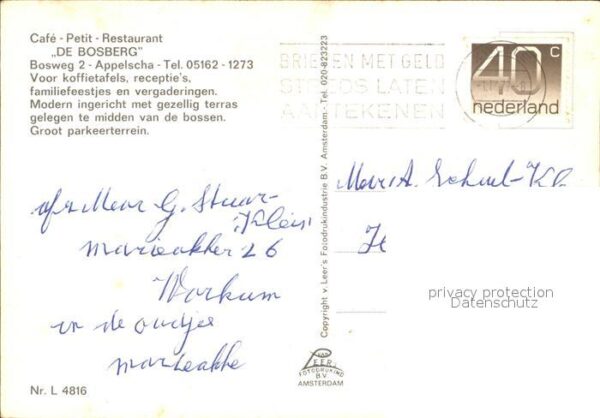 Café - Petit - Restaurant
„DE BOSBERG”
Bosweg 2 - Appelscha - Tel. 05162 - 1273
Voor koffietafels, receptie's,
familiefeestjes en vergaderingen.
Modern ingericht met gezellig terras
gelegen te midden van de bossen.
Groot parkeerterrein.
BRIEVEN MET GELD
STEEDS LATEN
AANTEKENEN
40 c
nederland
Copyright v. Leer's Fotodrukindustrie B.V. Amsterdam. Tel. 020-823223
afz Mevr G. Stuur-
Klein
marieakker 26
Workum
Mevr A.
privacy protection
Datenschutz
VAN
LEER
FOTODRUKIND
B.V.
AMSTERDAM
Nr. L 4816